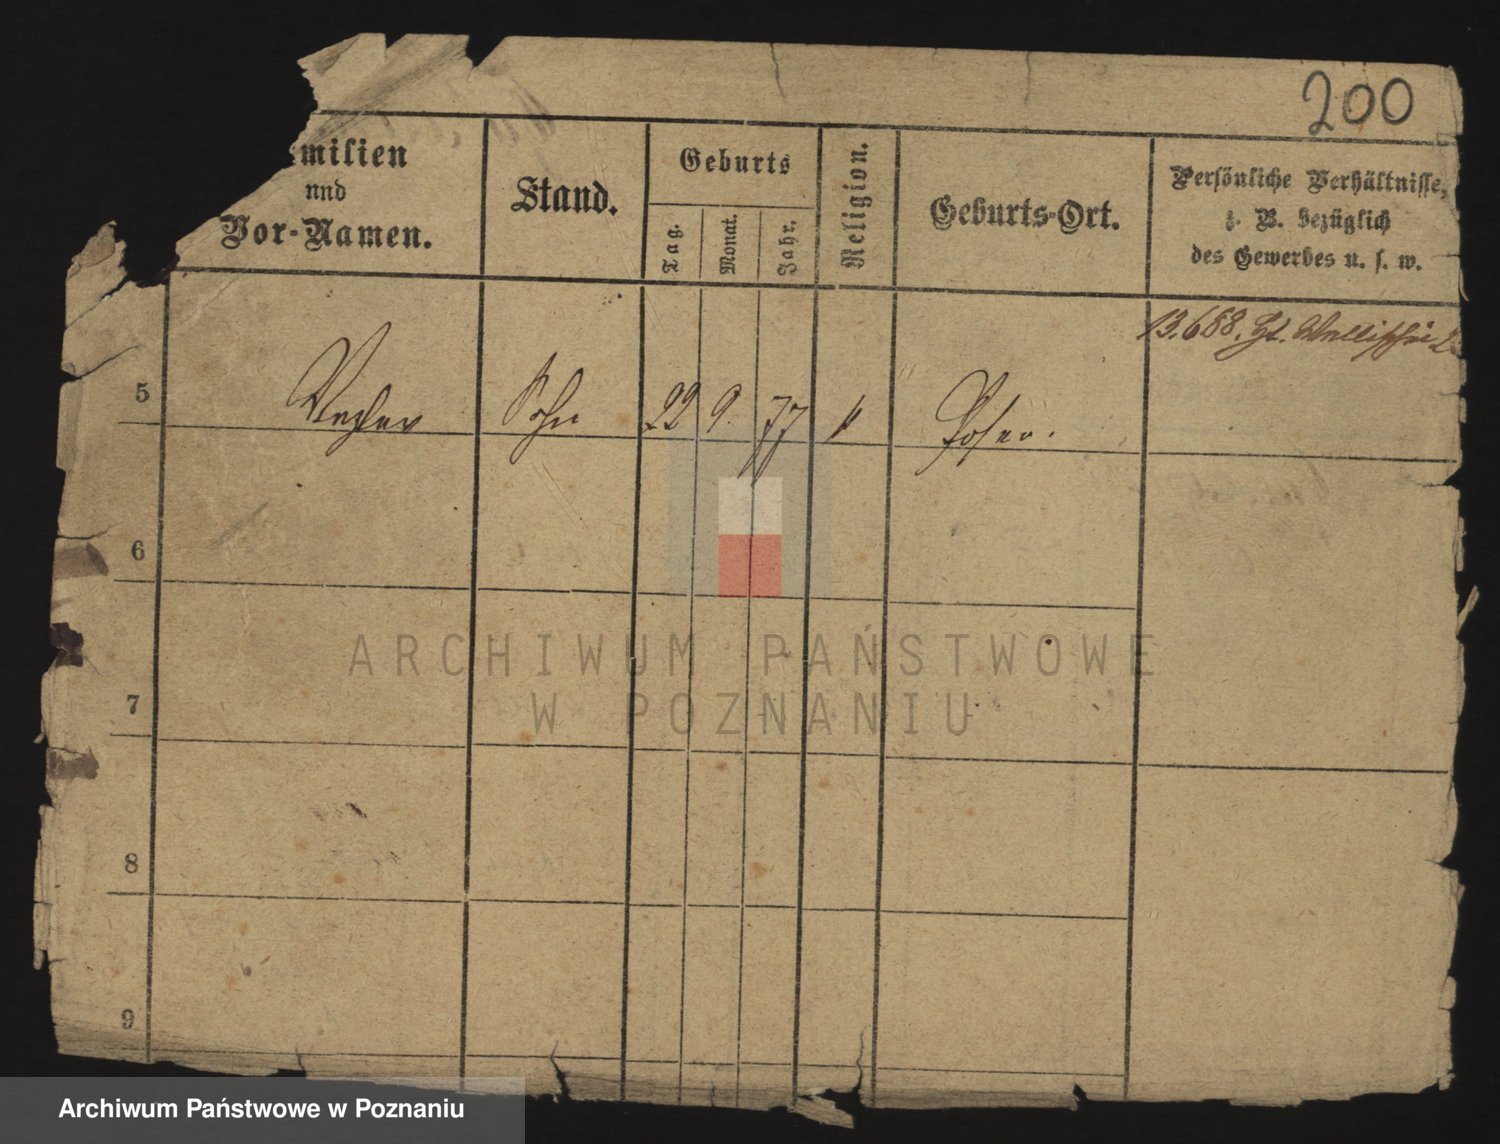 200
milien
und
Vor-Namen.
Stand.
Geburts
Tag.
Monat.
Jahr.
Religion.
Geburts-Ort.
Persönliche Verhältnisse,
z. B. bezüglich
des Gewerbes u. s. w.
13.6.88. Wallischei
5 Sohn 22 9. 77 Posen.
6
7
8
9
ARCHIWUM PAŃSTWOWE
W POZNANIU
Archiwum Państwowe w Poznaniu